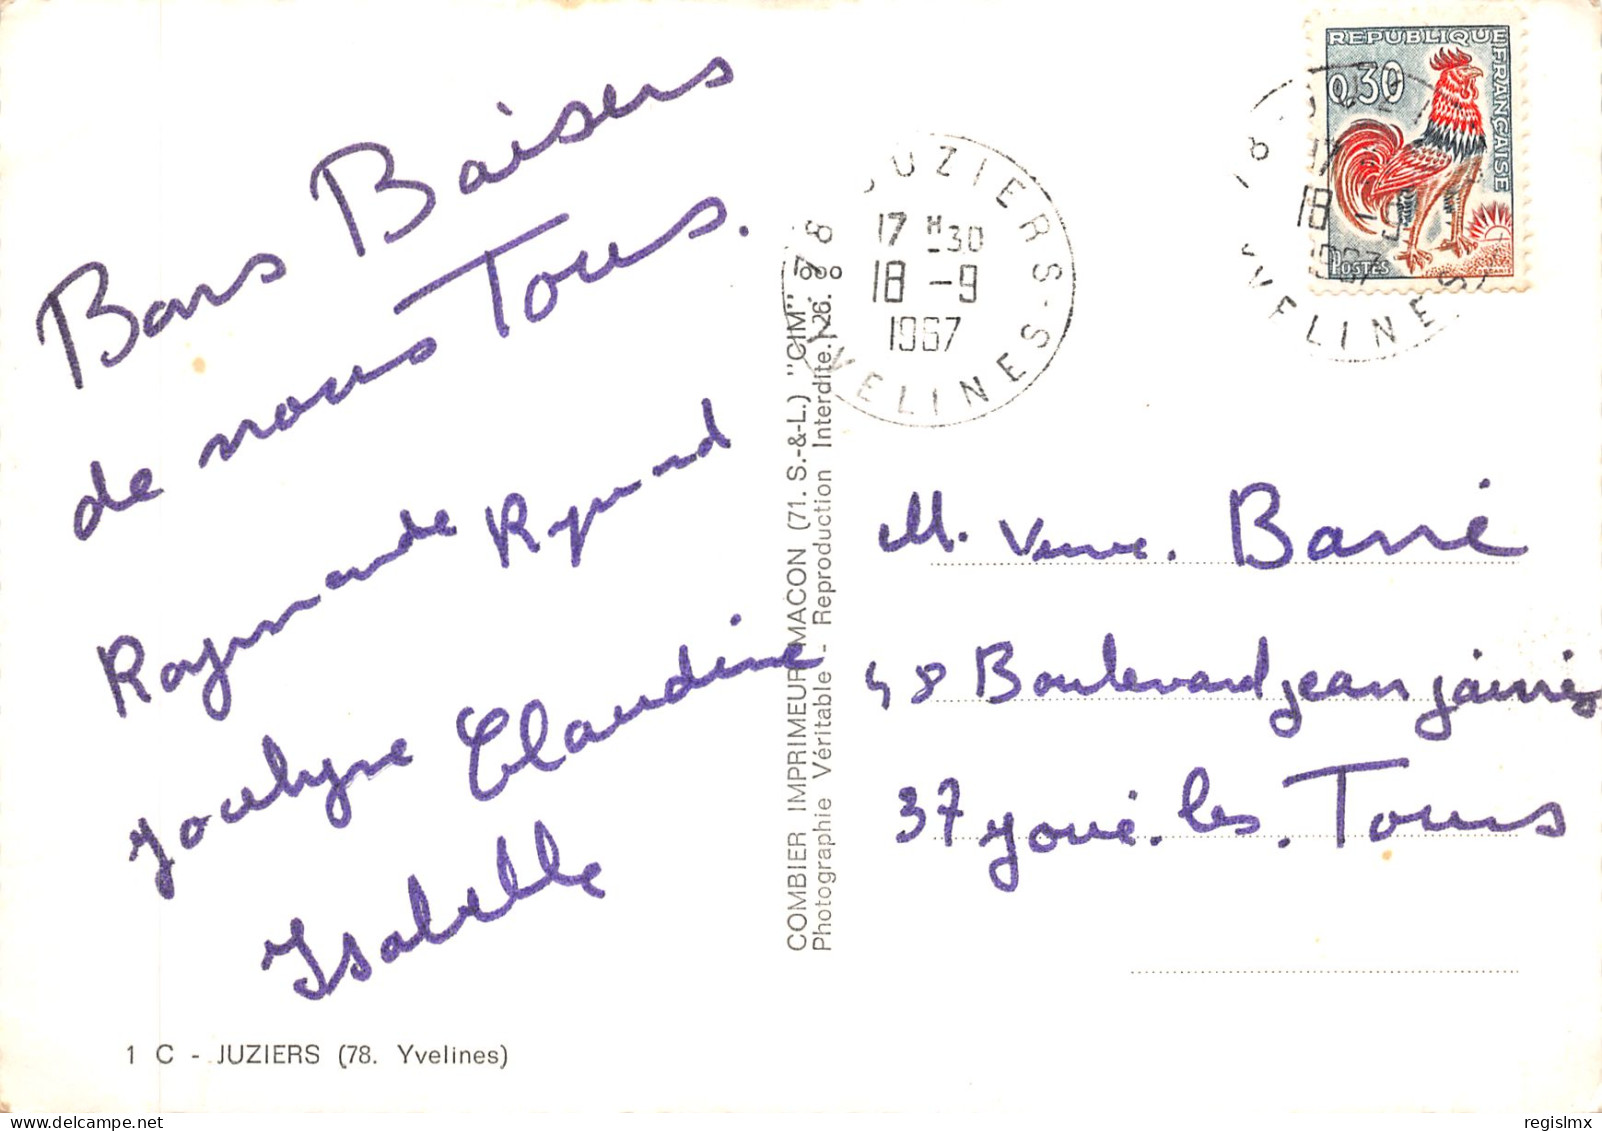 Bons Baisers
de nous Tous.
Raymonde Raymond
Jocelyne Claudine
Isabelle
1 C - JUZIERS (78. Yvelines)
COMBIER IMPRIMEUR MACON (71. S.-&-L.) "CIM"
Photographie Véritable - Reproduction Interdite.
REPUBLIQUE FRANÇAISE
0,30
POSTES
78 JUZIERS
17 H 30
18 - 9
1967
YVELINES
18 - 9
1967
YVELINES
M. Veuve. Barré
48 Boulevard jean jaurès
37 Joué. les. Tours
regislmx